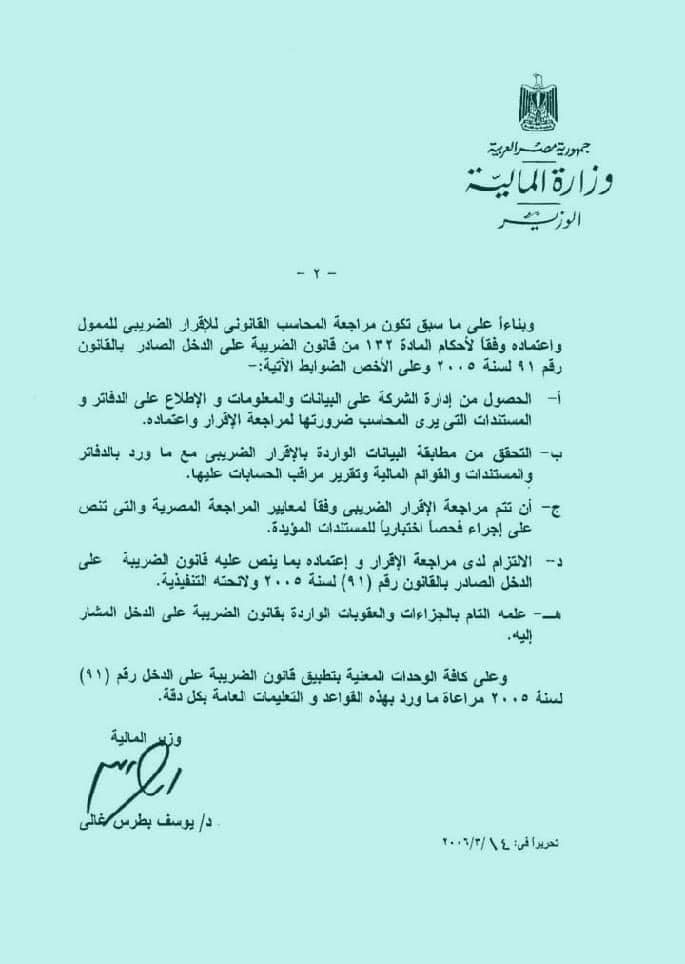 جمهورية مصر العربية
وزارة المالية
الوزير
- ٢ -
وبناءاً على ما سبق تكون مراجعة المحاسب القانونى للإقرار الضريبى للممول
واعتماده وفقاً لأحكام المادة ١٣٢ من قانون الضريبة على الدخل الصادر بالقانون
رقم ٩١ لسنة ٢٠٠٥ وعلى الأخص الضوابط الآتية:-
أ- الحصول من إدارة الشركة على البيانات والمعلومات و الإطلاع على الدفاتر و
المستندات التى يرى المحاسب ضرورتها لمراجعة الإقرار واعتماده.
ب- التحقق من مطابقة البيانات الواردة بالإقرار الضريبى مع ما ورد بالدفاتر
والمستندات والقوائم المالية وتقرير مراقب الحسابات عليها.
ج- أن تتم مراجعة الإقرار الضريبى وفقاً لمعايير المراجعة المصرية والتى تنص
على إجراء فحصاً اختبارياً للمستندات المؤيدة.
د- الالتزام لدى مراجعة الإقرار و إعتماده بما ينص عليه قانون الضريبة على
الدخل الصادر بالقانون رقم (٩١) لسنة ٢٠٠٥ ولائحته التنفيذية.
هـ- علمه التام بالجزاءات والعقوبات الواردة بقانون الضريبة على الدخل المشار
إليه.
وعلى كافة الوحدات المعنية بتطبيق قانون الضريبة على الدخل رقم (٩١)
لسنة ٢٠٠٥ مراعاة ما ورد بهذه القواعد و التعليمات العامة بكل دقة.
وزير المالية
د/ يوسف بطرس غالى
تحريراً فى: ١٤/٣/٢٠٠٦